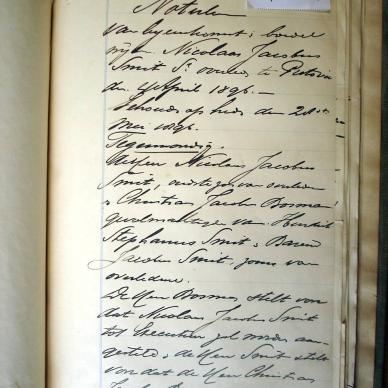 Notulen
van byeenkomst i. boedel
wijlen Nicolaas Jacobus
Smit Sr overl. te Pretoria
den 4 April 1896.—
Gehouden op heden den 20ste
Mei 1896.
Tegenwoordig.
De Heer Nicolaas Jacobus
Smit, oudste zoon van overledene
& Christian Jacob Bosman
gevolmachtigde van Hendrik
Stephanus Smit & Barend
Jacobus Smit, zoons van
overledene.
De Heer Bosman stelt voor
dat Nicolaas Jacobus Smit
tot Executeur zal worden aan-
gesteld, & de Heer Smit stelt
voor dat de Heer Christian